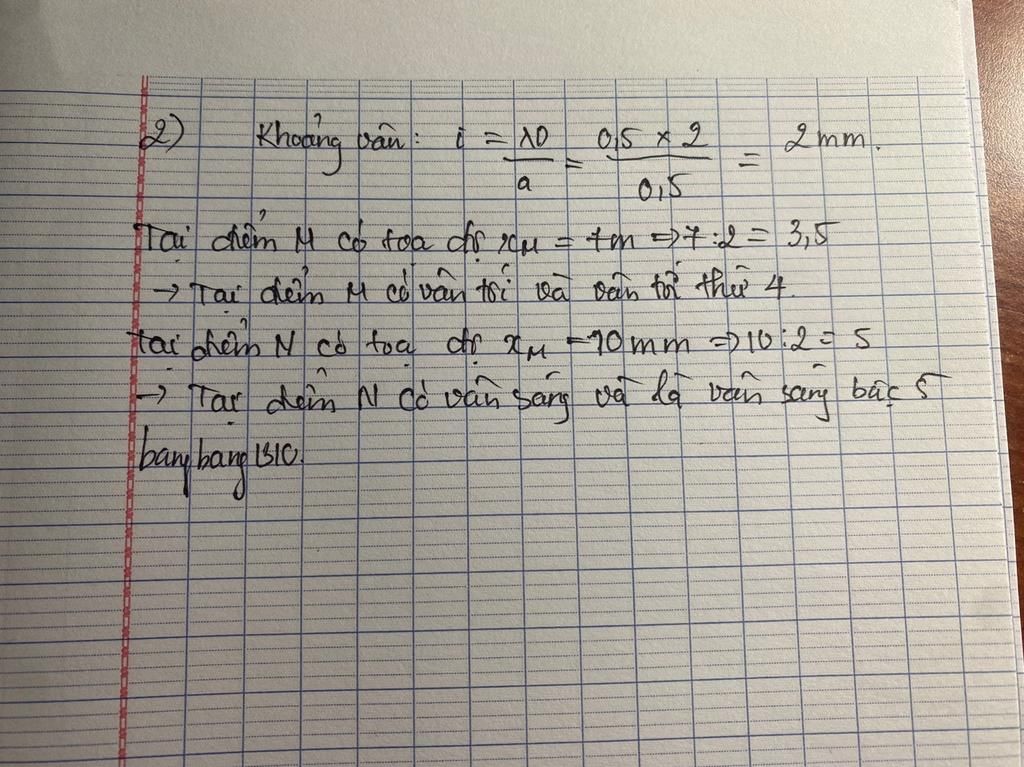 2) Khoảng vân: i = λD/a = 0,5 x 2/0,5 = 2mm.
Tại điểm M có tọa độ xM = 7m => 7:2 = 3,5
→ Tại điểm M có vân tối và vân tối thứ 4.
Tại điểm N có tọa độ xM = 10mm => 10:2 = 5
→ Tại điểm N có vân sáng và là vân sáng bậc 5
bangbang1310.